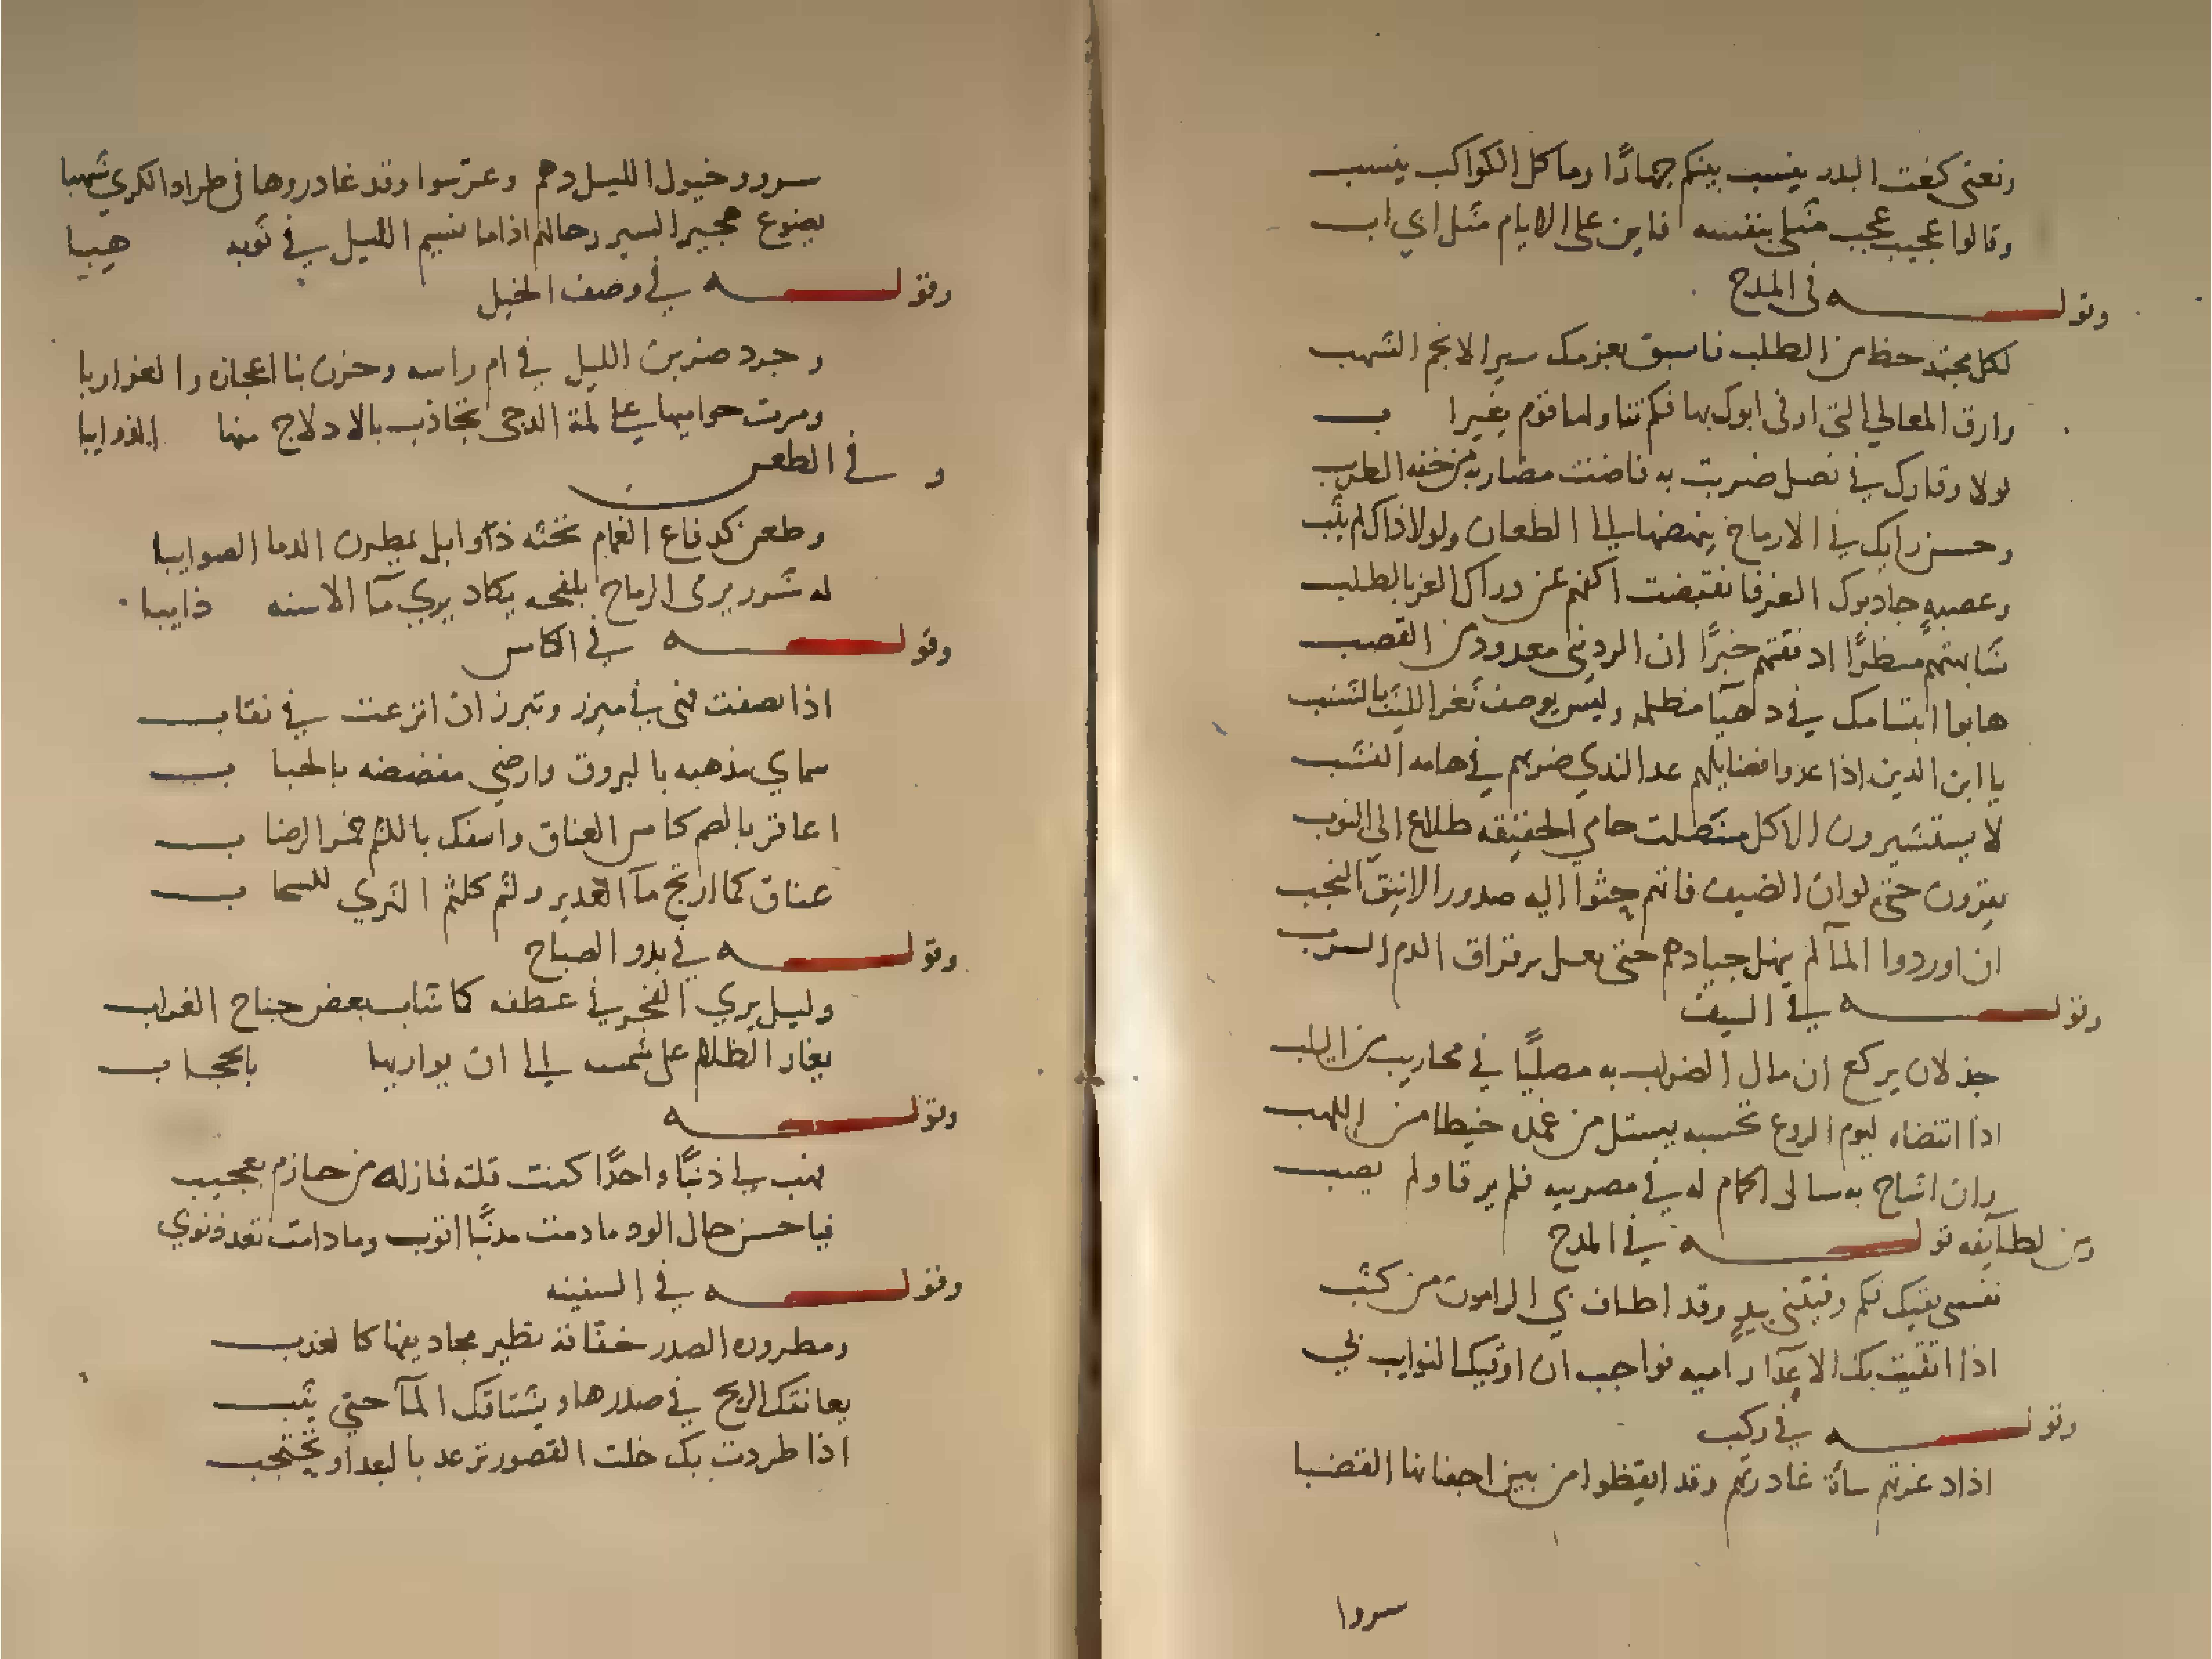 ونعتى كنعت البدر ينسب بينكم جهارًا وما كل الكواكب ينسب
وقالوا عجيب عجب مثلى بنفسه فاين على الايام مثل ابي اب
وقوله فى المدح
لكل مجتهد حظ من الطلب فاسبق بعزمك سير الانجم الشهب
وارق المعالي التى اوفى ابوك بها فكم تناولها قوم بغير اب
لولا وقارك في نصل ضربت به فاضت مضاربه من خفه الطرب
وحسن رايك في الارماح ينهضها الى الطعان ولولا ذاك لم يثب
وعصبه جاذبوك العز فانقبضت اكفهم عن دراك العز بالطلب
شابهتهم منظرًا اذ فقتهم خبرًا ان الردينى معدود من القصب
هابوا ابتسامك في دهيآ مظلمه وليس يوصف ثغر الليث بالشنب
يا ابن الذين اذا عدوا فضايلهم عد الندي ضربهم في هامه النشب
لا يستشيرون الا كل منصلت حامي الحقيقه طلاع الى النوب
يقرون حتى لو ان الضيف فاتهم جثوا اليه صدور الانيق النجب
ان اوردوا المآ لم ينهل جيادهم حتى يعل برقراق الدم السرب
وقوله في السيف
جذلان يركع ان مال الضراب به مصليًا في محاريب من اليلب
اذا انتضاه ليوم الروع تحسبه يستل من غمده خيطا من اللهب
وان اشاح به سالى الحمام له في مضربيه فلم يرقا ولم يصب
ومن لطايفه قوله في المدح
نفسى تقيك فكم وقيتنى بيدٍ وقد اطاف بي الرامون من كثب
اذا اتقيت بك الاعدآ راميه فواجب ان اوقيك النوايب بي
وقوله في ركب
اذا دعرتهم سأة غادرتهم وقد ايقظوا من بين اجفانها القضبا
سروا
سروو خيول الليل دهم وعرسوا وقد غادروها فى طراد الكري شهبا
يضوع هجير السير رحالهم اذا ما نسيم الليل في ثوبه هبا
وقوله في وصف الخيل
وجرد ضربن الليل في ام راسه وحزن بنا اعجازه والغواربا
ومرت حواميها على لمة الدجى تجاذب بالادلاج منها الذوايبا
وفي الطعن
وطعن كدفاع الغمام تحثه ذوابل يمطرن الدما الصوايبا
له شرر يرمى الرماح بلفحه يكاد يري مآ الاسنه ذايبا
وقوله في الكاس
اذا نصفت فهى في ميزر وتبرز ان اترعت في نقاب
سماي مذهبه بالبروق وارضي مفضضه بالحباب
اعاقر بالضم كاس العناق واسفك باللثم خمر الرضاب
عناق كما ارتج مآ الغدير ولثم كلثم الثري للسحاب
وقوله في بدو الصباح
وليل يري الفجر في عطفه كما شاب بعض جناح الغراب
يغار الظلام على شمسه الى ان يواريها بالحجاب
وقوله
فهب لي ذنبًا واحدًا كنت قلته فما زله من حازم بعجيب
فيا حسن حال الود ما دمت مذنبًا اتوب وما دامت تعد ذنوبي
وقوله في السفينه
ومطروره الصدر خفاقة تطير مجاديفها كالعذب
يعانقك الريح في صدرها ويشتاقك المآ حتى يثب
اذا طردت بك خلت القصور ترعد بالبعد او تحتجب